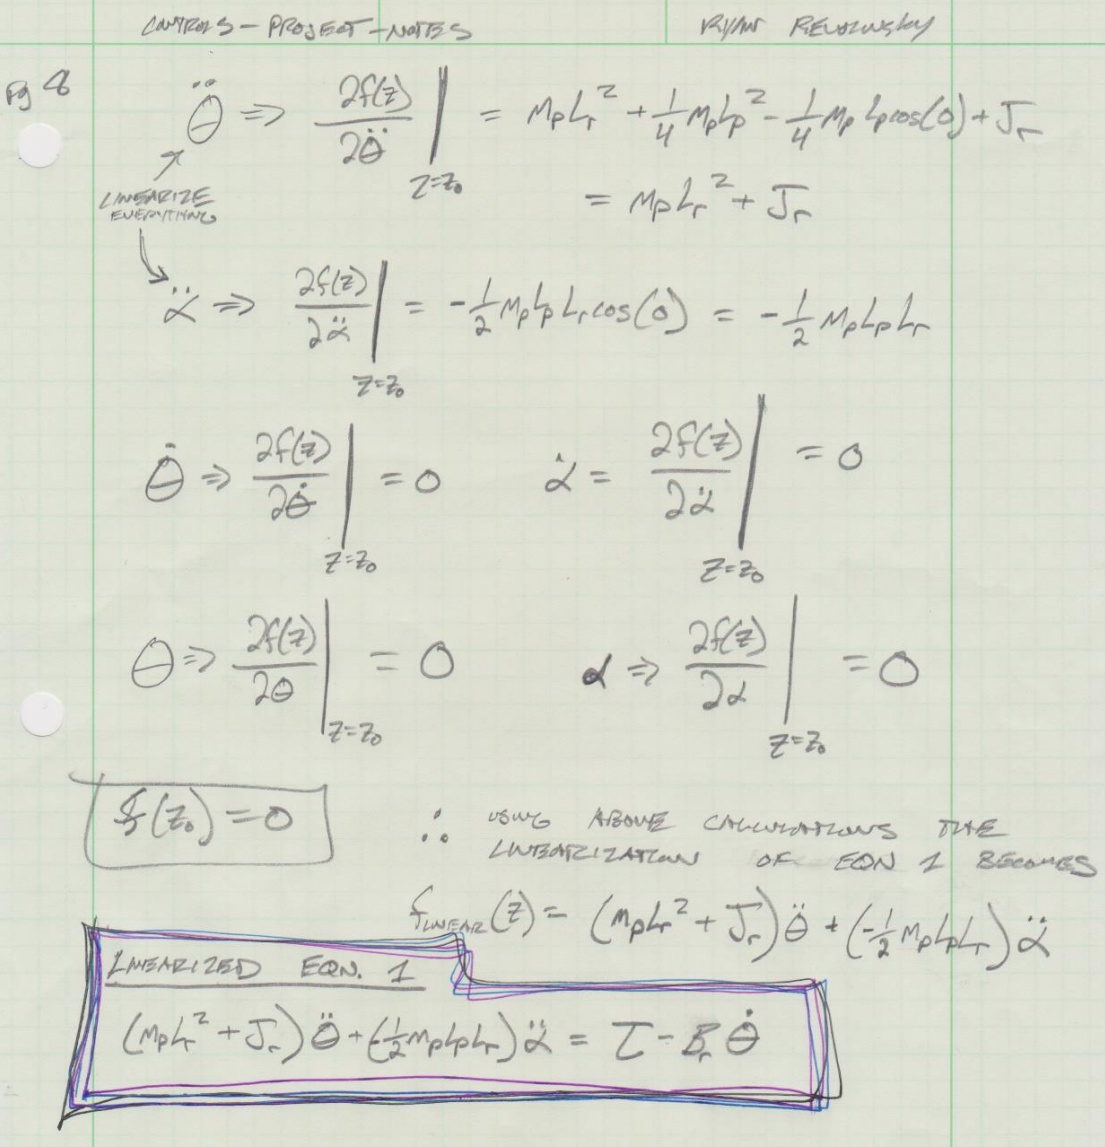 CONTROLS - PROJECT - NOTES RYAN REVOLINSKY
Pg 8
θ̈ ⇒ ∂f(z)/∂θ̈ |z=z₀ = MpLr² + 1/4 MpLp² - 1/4 MpLpcos(0) + Jr
= MpLr² + Jr
LINEARIZE
EVERYTHING
α̈ ⇒ ∂f(z)/∂α̈ |z=z₀ = -1/2 MpLpLrcos(0) = -1/2 MpLpLr
θ̇ ⇒ ∂f(z)/∂θ̇ |z=z₀ = 0 α̇ = ∂f(z)/∂α̇ |z=z₀ = 0
θ ⇒ ∂f(z)/∂θ |z=z₀ = 0 α ⇒ ∂f(z)/∂α |z=z₀ = 0
f(z₀) = 0
∴ USING ABOVE CALCULATIONS THE
LINEARIZATION OF EQN 1 BECOMES
fLINEAR(z) = (MpLr² + Jr)θ̈ + (-1/2 MpLpLr)α̈
LINEARIZED EQN. 1
(MpLr² + Jr)θ̈ + (-1/2 MpLpLr)α̈ = τ - Brθ̇